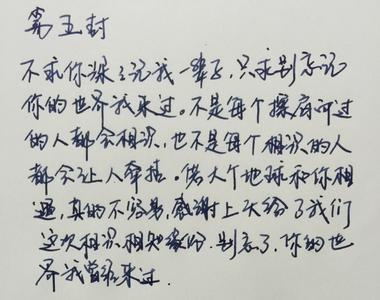 第五封
不求你深深记我一辈子,只求别忘记
你的世界我来过。不是每个擦肩而过
的人都会相识,也不是每个相识的人
都会让人牵挂。偌大个地球和你相
遇,真的不容易,感谢上天给了我们
这次相识、相知缘份.别忘了,你的世
界我曾经来过.